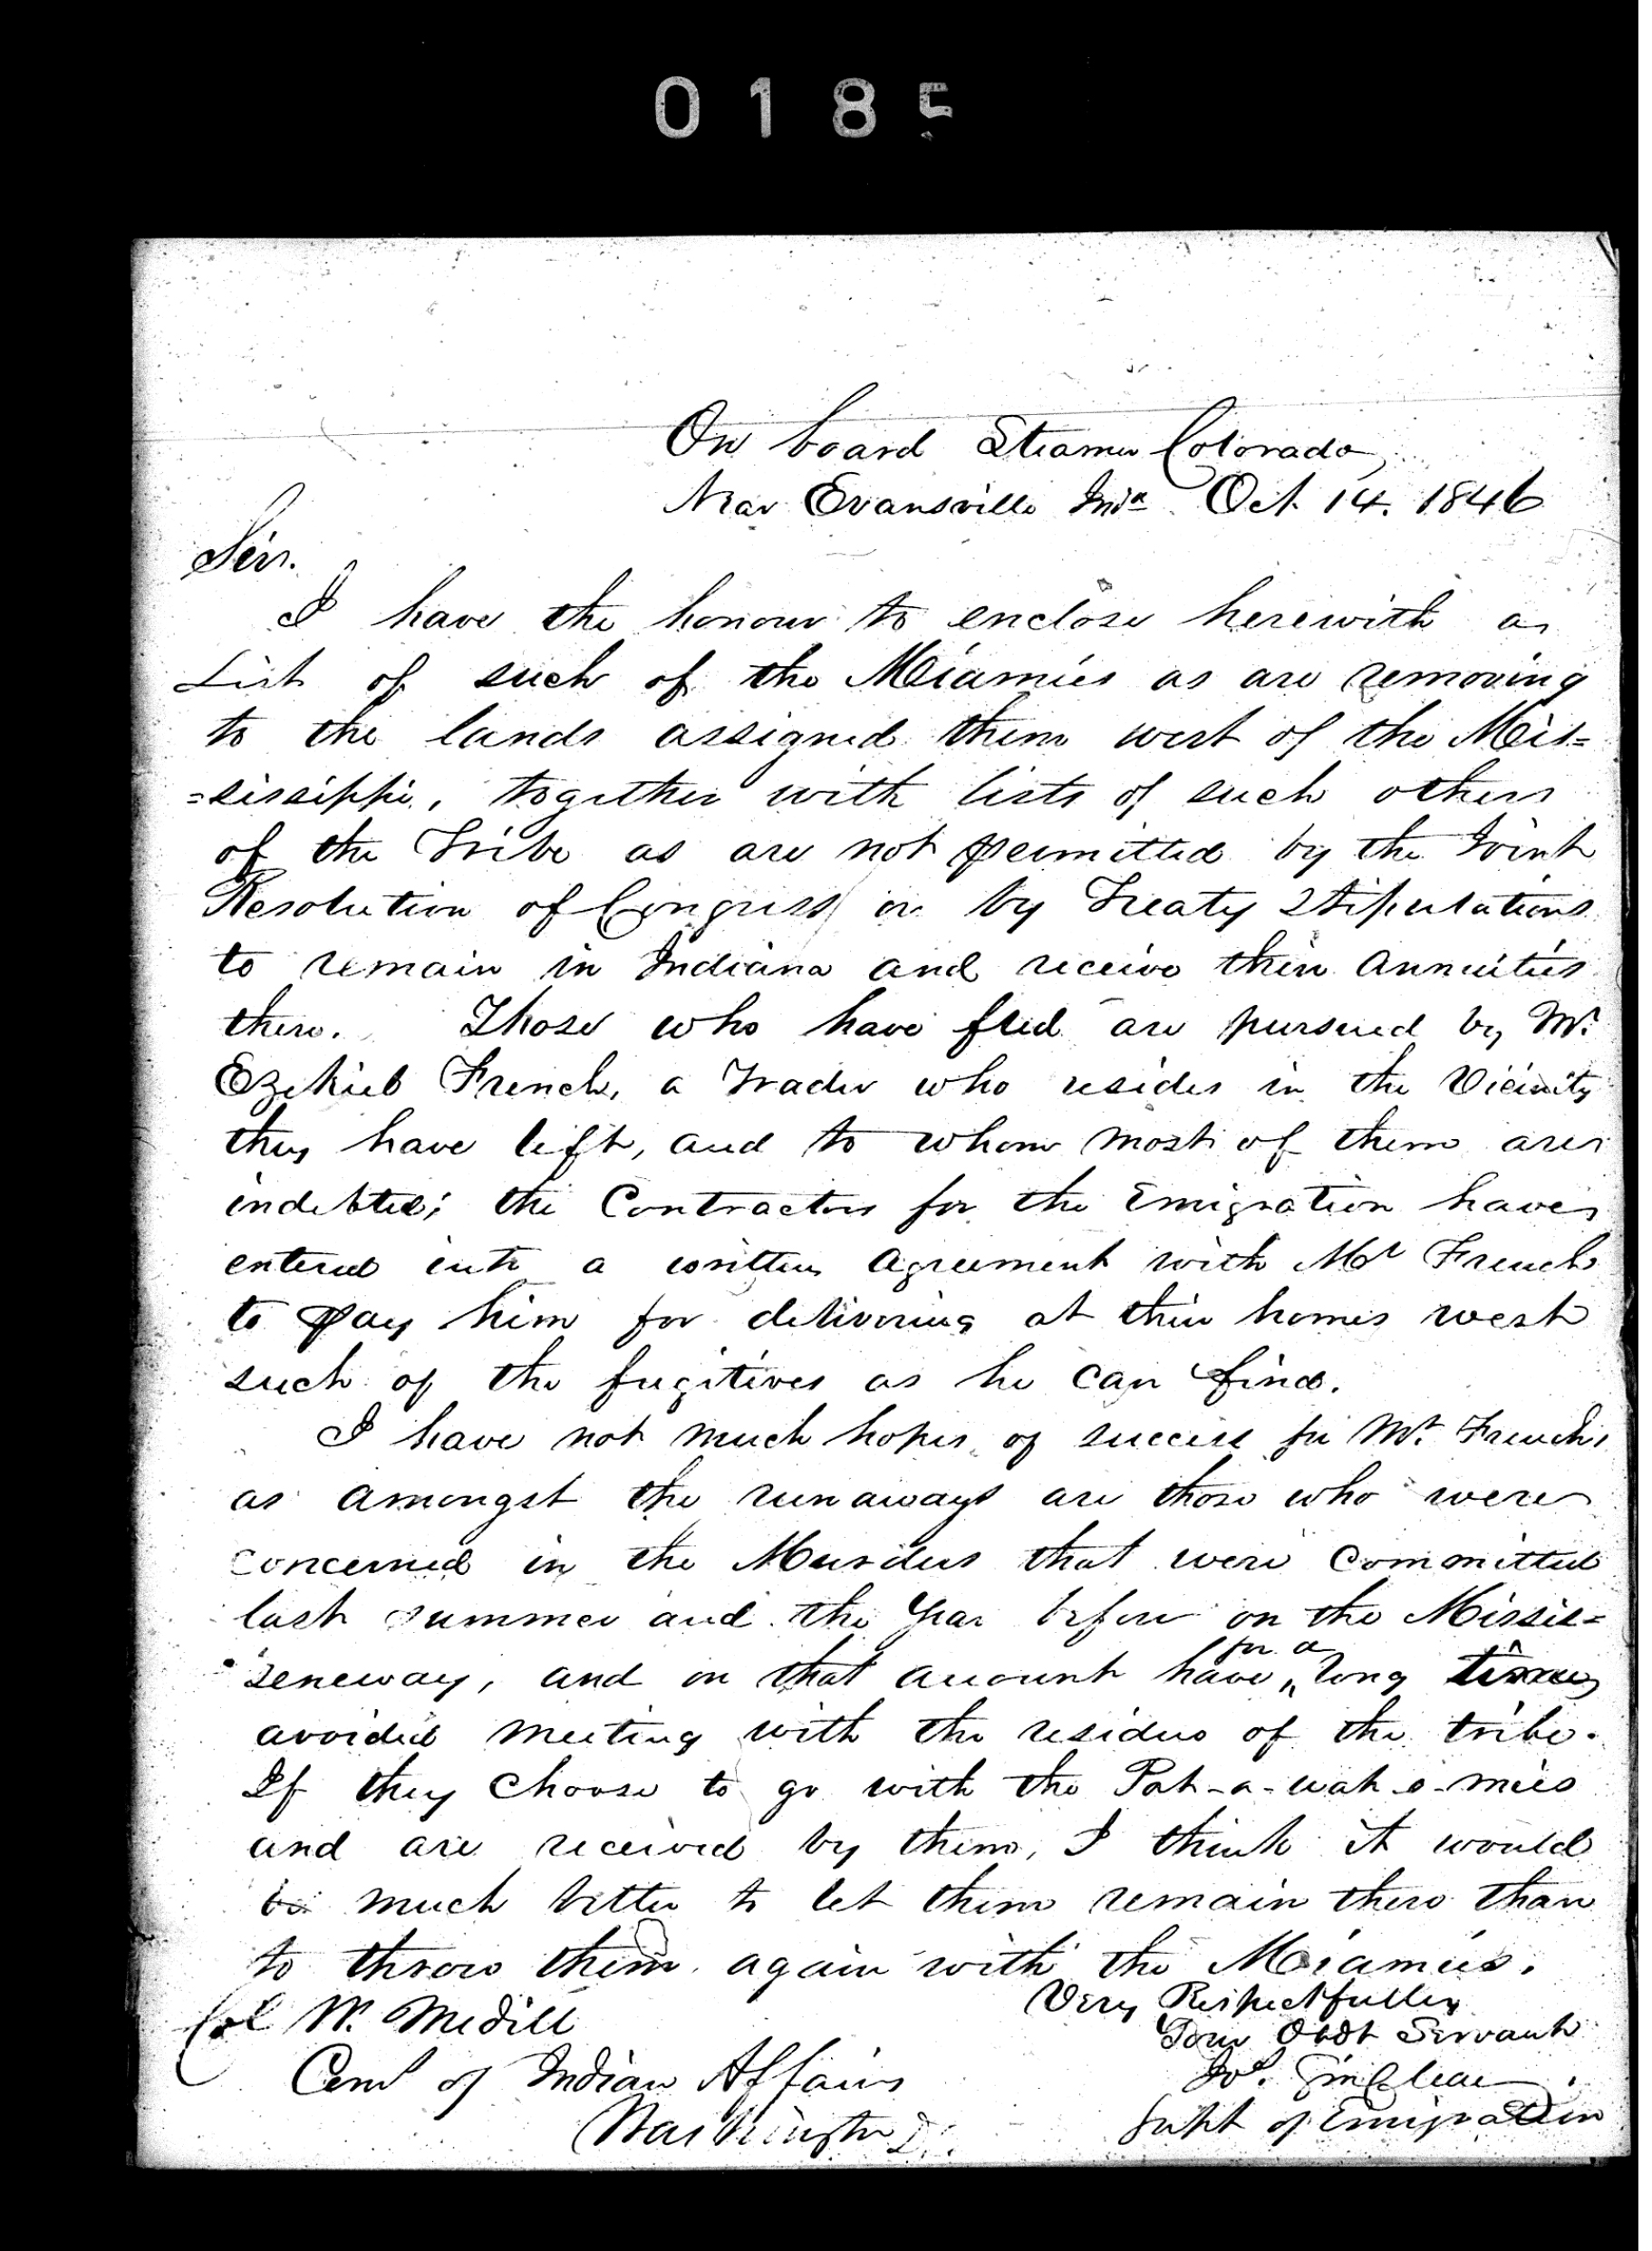 0185
On board Steamer Colorado,
Near Evansville Inda Oct. 14. 1846
Sir.
I have the honour to enclose herewith a
List of such of the Miamies as are removing
to the lands assigned them west of the Mis=
=sissippi, together with lists of such others
of the Tribe as are not permitted by the Joint
Resolution of Congress or by Treaty Stipulations
to remain in Indiana and receive their Annuities
there. Those who have fled are pursued by Mr.
Ezekiel French, a Trader who resides in the Vicinity
they have left, and to whom most of them are
indebted; the Contractors for the Emigration have
entered into a written Agreement with Mr French
to pay him for delivering at their homes west
such of the fugitives as he can find.
I have not much hopes of success for Mr. French,
as amongst the runaways are those who were
concerned in the Murders that were Committed
last summer and the Year before on the Missis=
seneway, and on that account have for a long time
avoided meeting with the residue of the tribe.
If they choose to go with the Pot-a-wat-o-mies
and are received by them, I think it would
be much better to let them remain there than
to throw them again with the Miamies.
Very Respectfully
Your Obdt Servant
Jos. Sinclear
Supt of Emigration
Col W. Medill
Coms of Indian Affairs
Washington D.C.